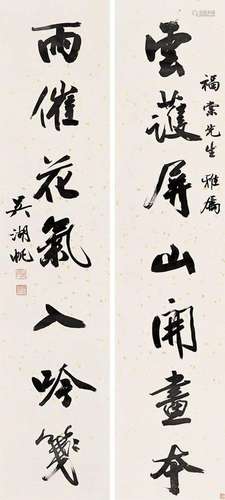 福棠先生雅属
雲護屏山開畫本
雨催花氣入吟箋
吳湖帆